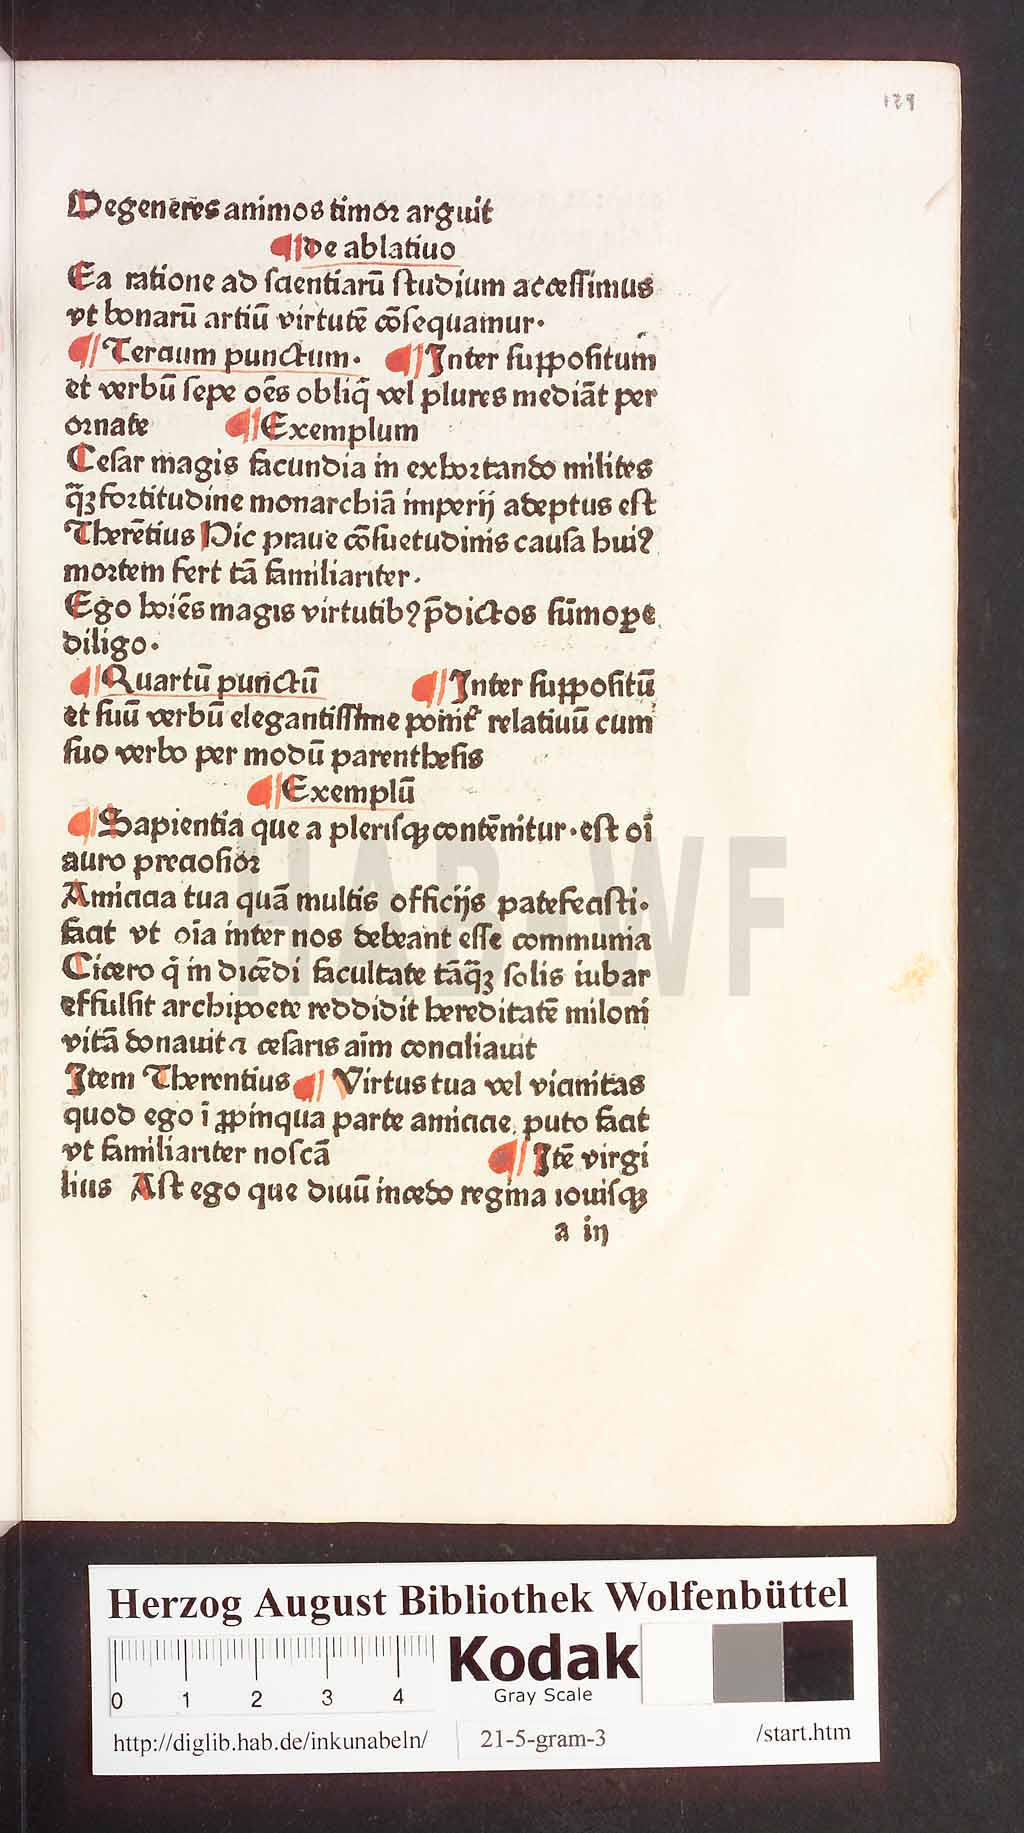 129
Degeneres animos timor arguit
¶De ablatiuo
Ea ratione ad scientiarū studium accessimus
vt bonarū artiū virtutē cōsequamur.
¶Tercium punctum. ¶Inter suppositum
et verbū sepe oēs obliq̄ vel plures mediāt per
ornate ¶Exemplum
Cesar magis facundia in exhortando milites
q̄ꝫ fortitudine monarchiā imperij adeptus est
Therētius Hic praue cōsuetudinis causa huiꝰ
mortem fert tā familiariter.
Ego hoīes magis virtutibꝰ p̄dictos sūmoꝑe
diligo.
¶Quartū punctū ¶Inter suppositū
et suū verbū elegantissime ponit᷑ relatiuū cum
suo verbo per modū parenthesis
¶Exemplū
¶Sapientia que a plerisqꝫ contēnitur. est oī
auro preciosior
Amicicia tua quā multis officijs patefecisti.
facit vt oīa inter nos debeant esse communia
Cicero q̄ in dicēdi facultate tāq̄ꝫ solis iubar
effulsit archipoete reddidit hereditatē miloni
vitā donauit ⁊ cesaris aīm conciliauit
Item Therentius ¶ Virtus tua vel vicinitas
quod ego ī ꝓpinqua parte amicicie puto facit
vt familiariter noscā ¶Itē virgi
lius Ast ego que diuū incedo regina iouisqꝫ
a iij
HAB WF
Herzog August Bibliothek Wolfenbüttel
0 1 2 3 4
Kodak
Gray Scale
http://diglib.hab.de/inkunabeln/ 21-5-gram-3 /start.htm